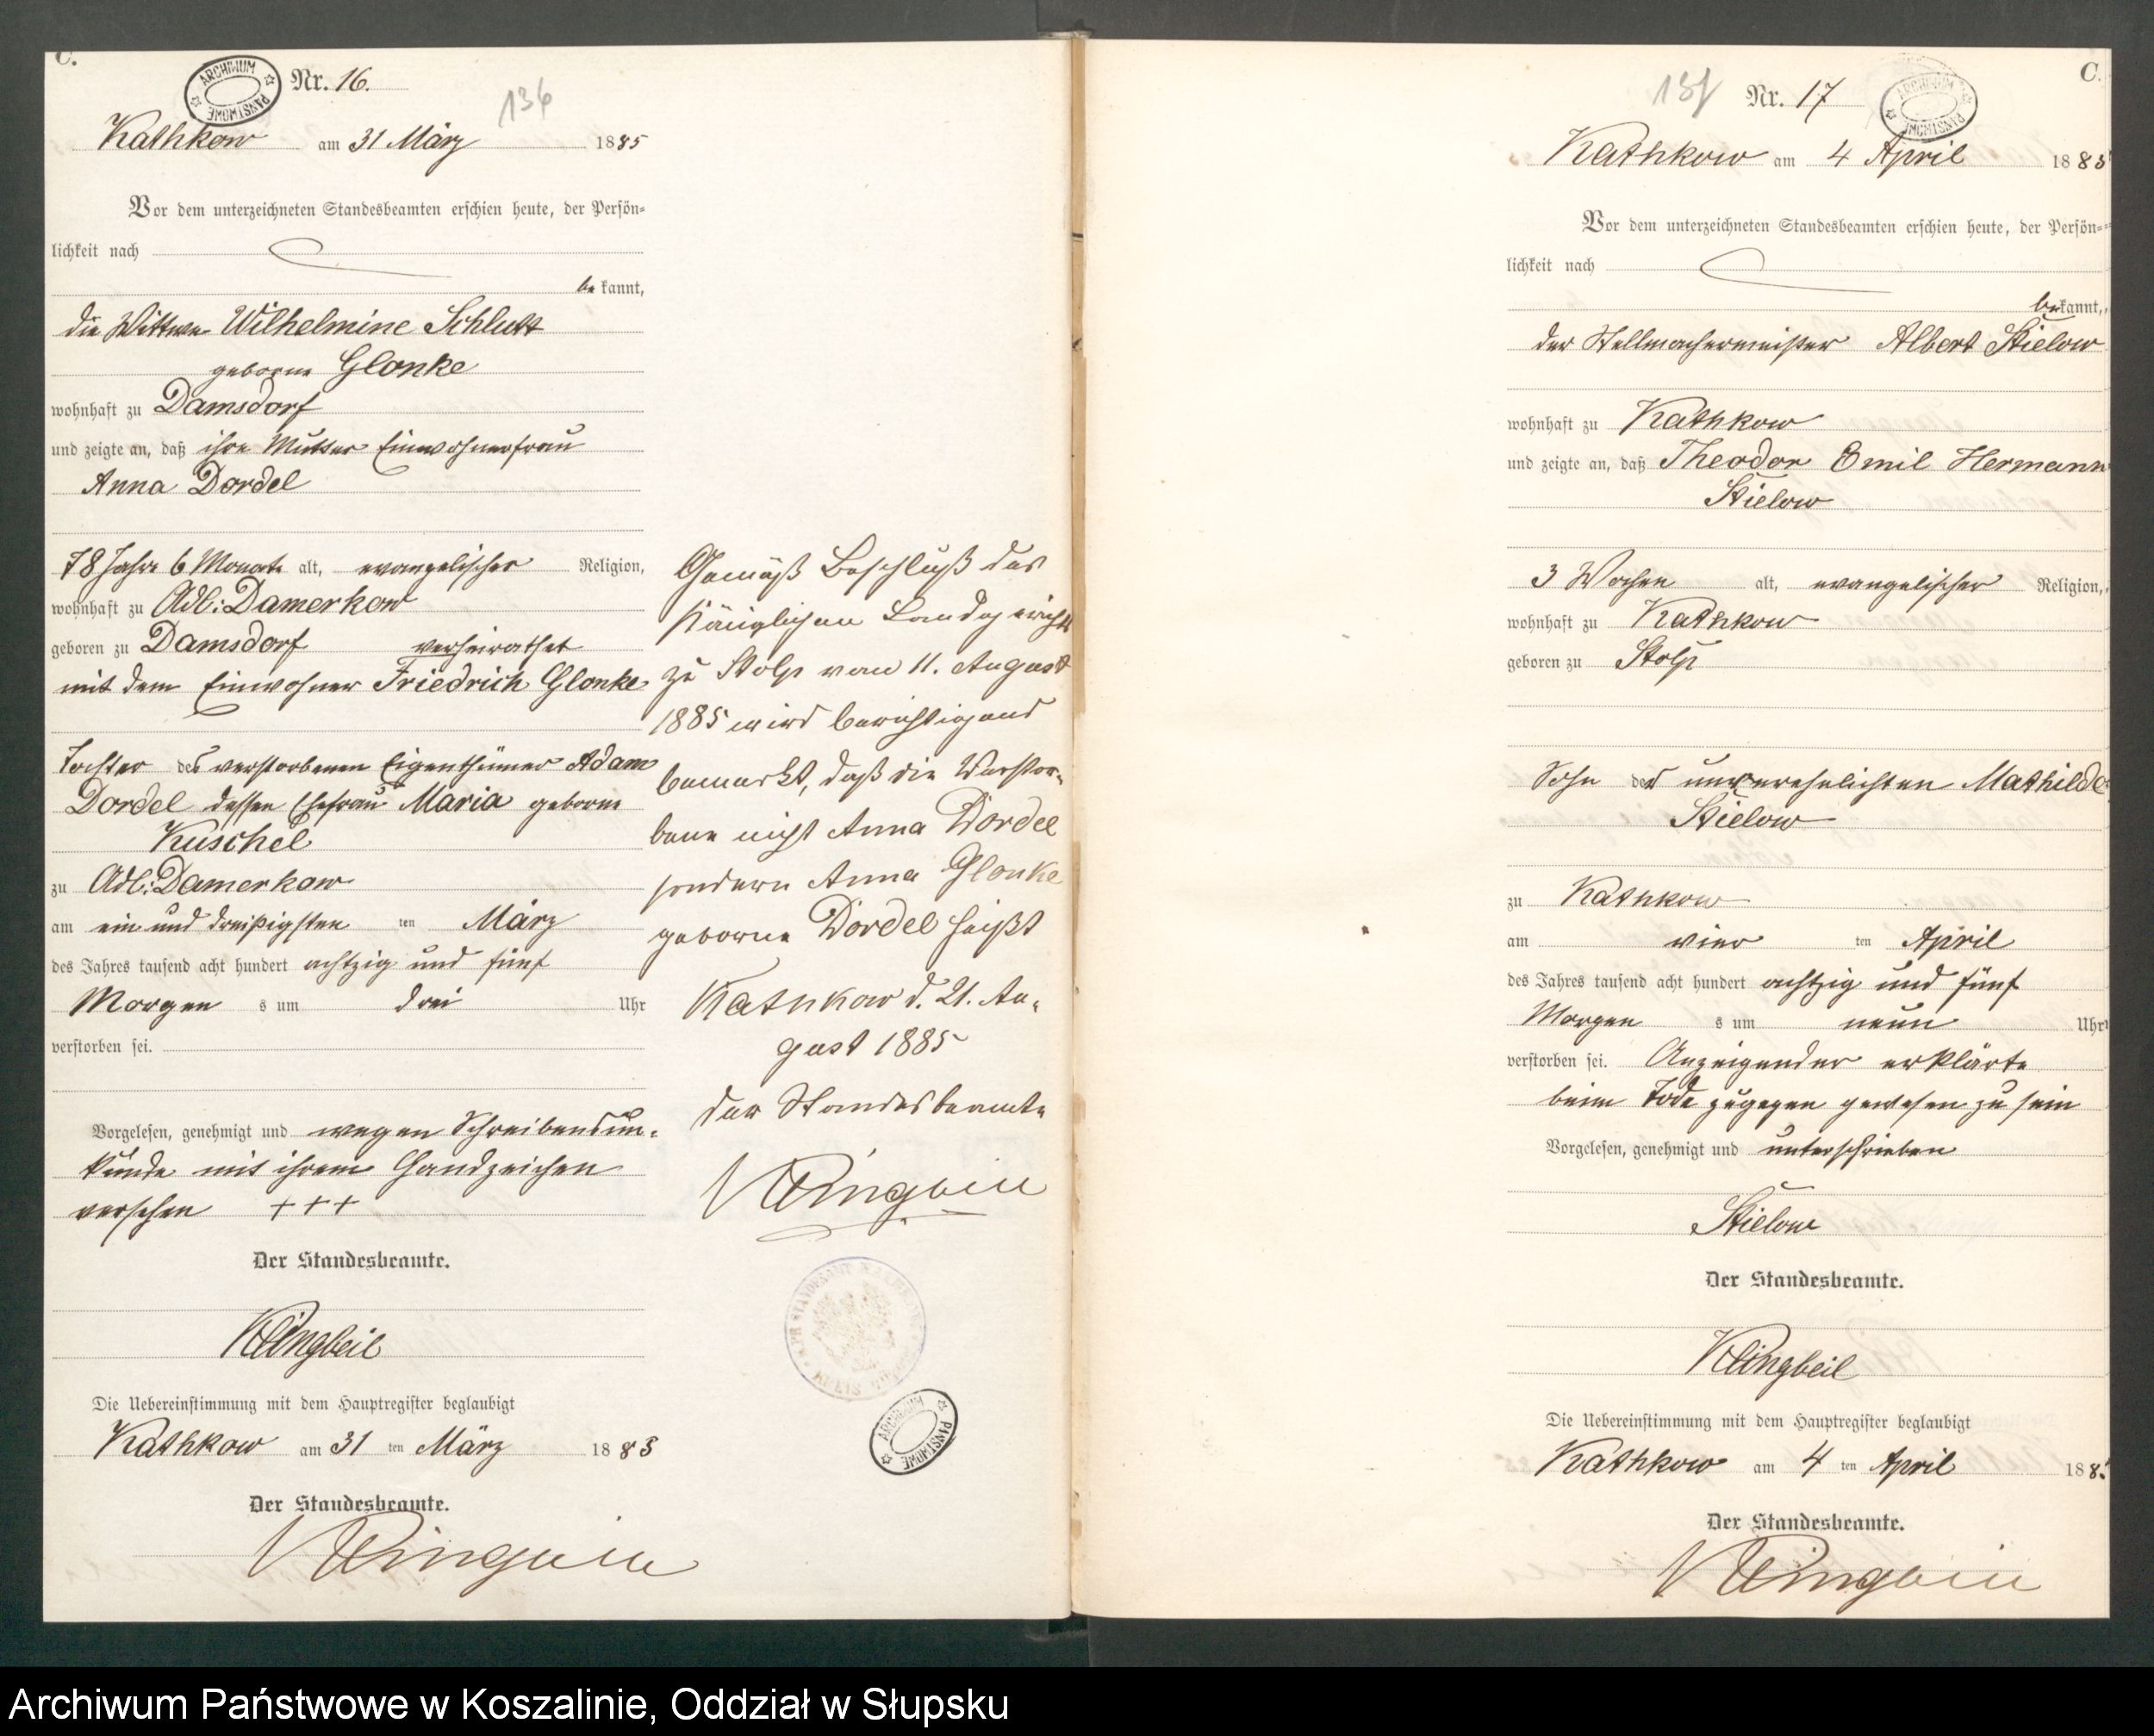 C.
ARCHIWUM PAŃSTWOWE
Nr. 16.
136
Kathkow am 31 März 1885
Vor dem unterzeichneten Standesbeamten erschien heute, der Persön=
lichkeit nach
be kannt,
die Wittwe Wilhelmine Schlutt
geborne Glonke
wohnhaft zu Damsdorf
und zeigte an, daß ihre Mutter Einwohnerfrau
Anna Dordel
78 Jahre 6 Monate alt, evangelischer Religion,
wohnhaft zu Adl: Damerkow
geboren zu Damsdorf verheirathet
mit dem Einwohner Friedrich Glonke
Tochter des verstorbenen Eigenthümer Adam
Dordel dessen Ehefrau Maria geborne
Kuschel
zu Adl: Damerkow
am ein und dreißigsten ten März
des Jahres tausend acht hundert achtzig und fünf
Morgen s um drei Uhr
verstorben sei.
Vorgelesen, genehmigt und wegen Schreibensun=
kunde mit ihrem Handzeichen
versehen + + +
Der Standesbeamte.
Klingbeil
Die Uebereinstimmung mit dem Hauptregister beglaubigt
Kathkow am 31 ten März 1885
Der Standesbeamte.
Klingbeil
Gemäß Beschluß des
Königlichen Landgerichts
zu Stolp vom 11. August
1885 wird berichtigend
bemerkt, daß die Verstor=
bene nicht Anna Dordel
sondern Anna Glonke
geborne Dordel heißt
Kathkow d. 21. Au=
gust 1885
Der Standesbeamte
Klingbeil
ARCHIWUM PAŃSTWOWE
C.
137
Nr. 17
ARCHIWUM PAŃSTWOWE
Kathkow am 4 April 1885
Vor dem unterzeichneten Standesbeamten erschien heute, der Persön=
lichkeit nach
be kannt,
der Stellmachermeister Albert Stielow
wohnhaft zu Kathkow
und zeigte an, daß Theodor Emil Hermann
Stielow
3 Wochen alt, evangelischer Religion,
wohnhaft zu Kathkow
geboren zu Stolp
Sohn der unverehelichten Mathilde
Stielow
zu Kathkow
am vier ten April
des Jahres tausend acht hundert achtzig und fünf
Morgen s um neun Uhr
verstorben sei. Anzeigender erklärte
beim Tode zugegen gewesen zu sein
Vorgelesen, genehmigt und unterschrieben
Stielow
Der Standesbeamte.
Klingbeil
Die Uebereinstimmung mit dem Hauptregister beglaubigt
Kathkow am 4 ten April 188
Der Standesbeamte.
Klingbeil
Archiwum Państwowe w Koszalinie, Oddział w Słupsku